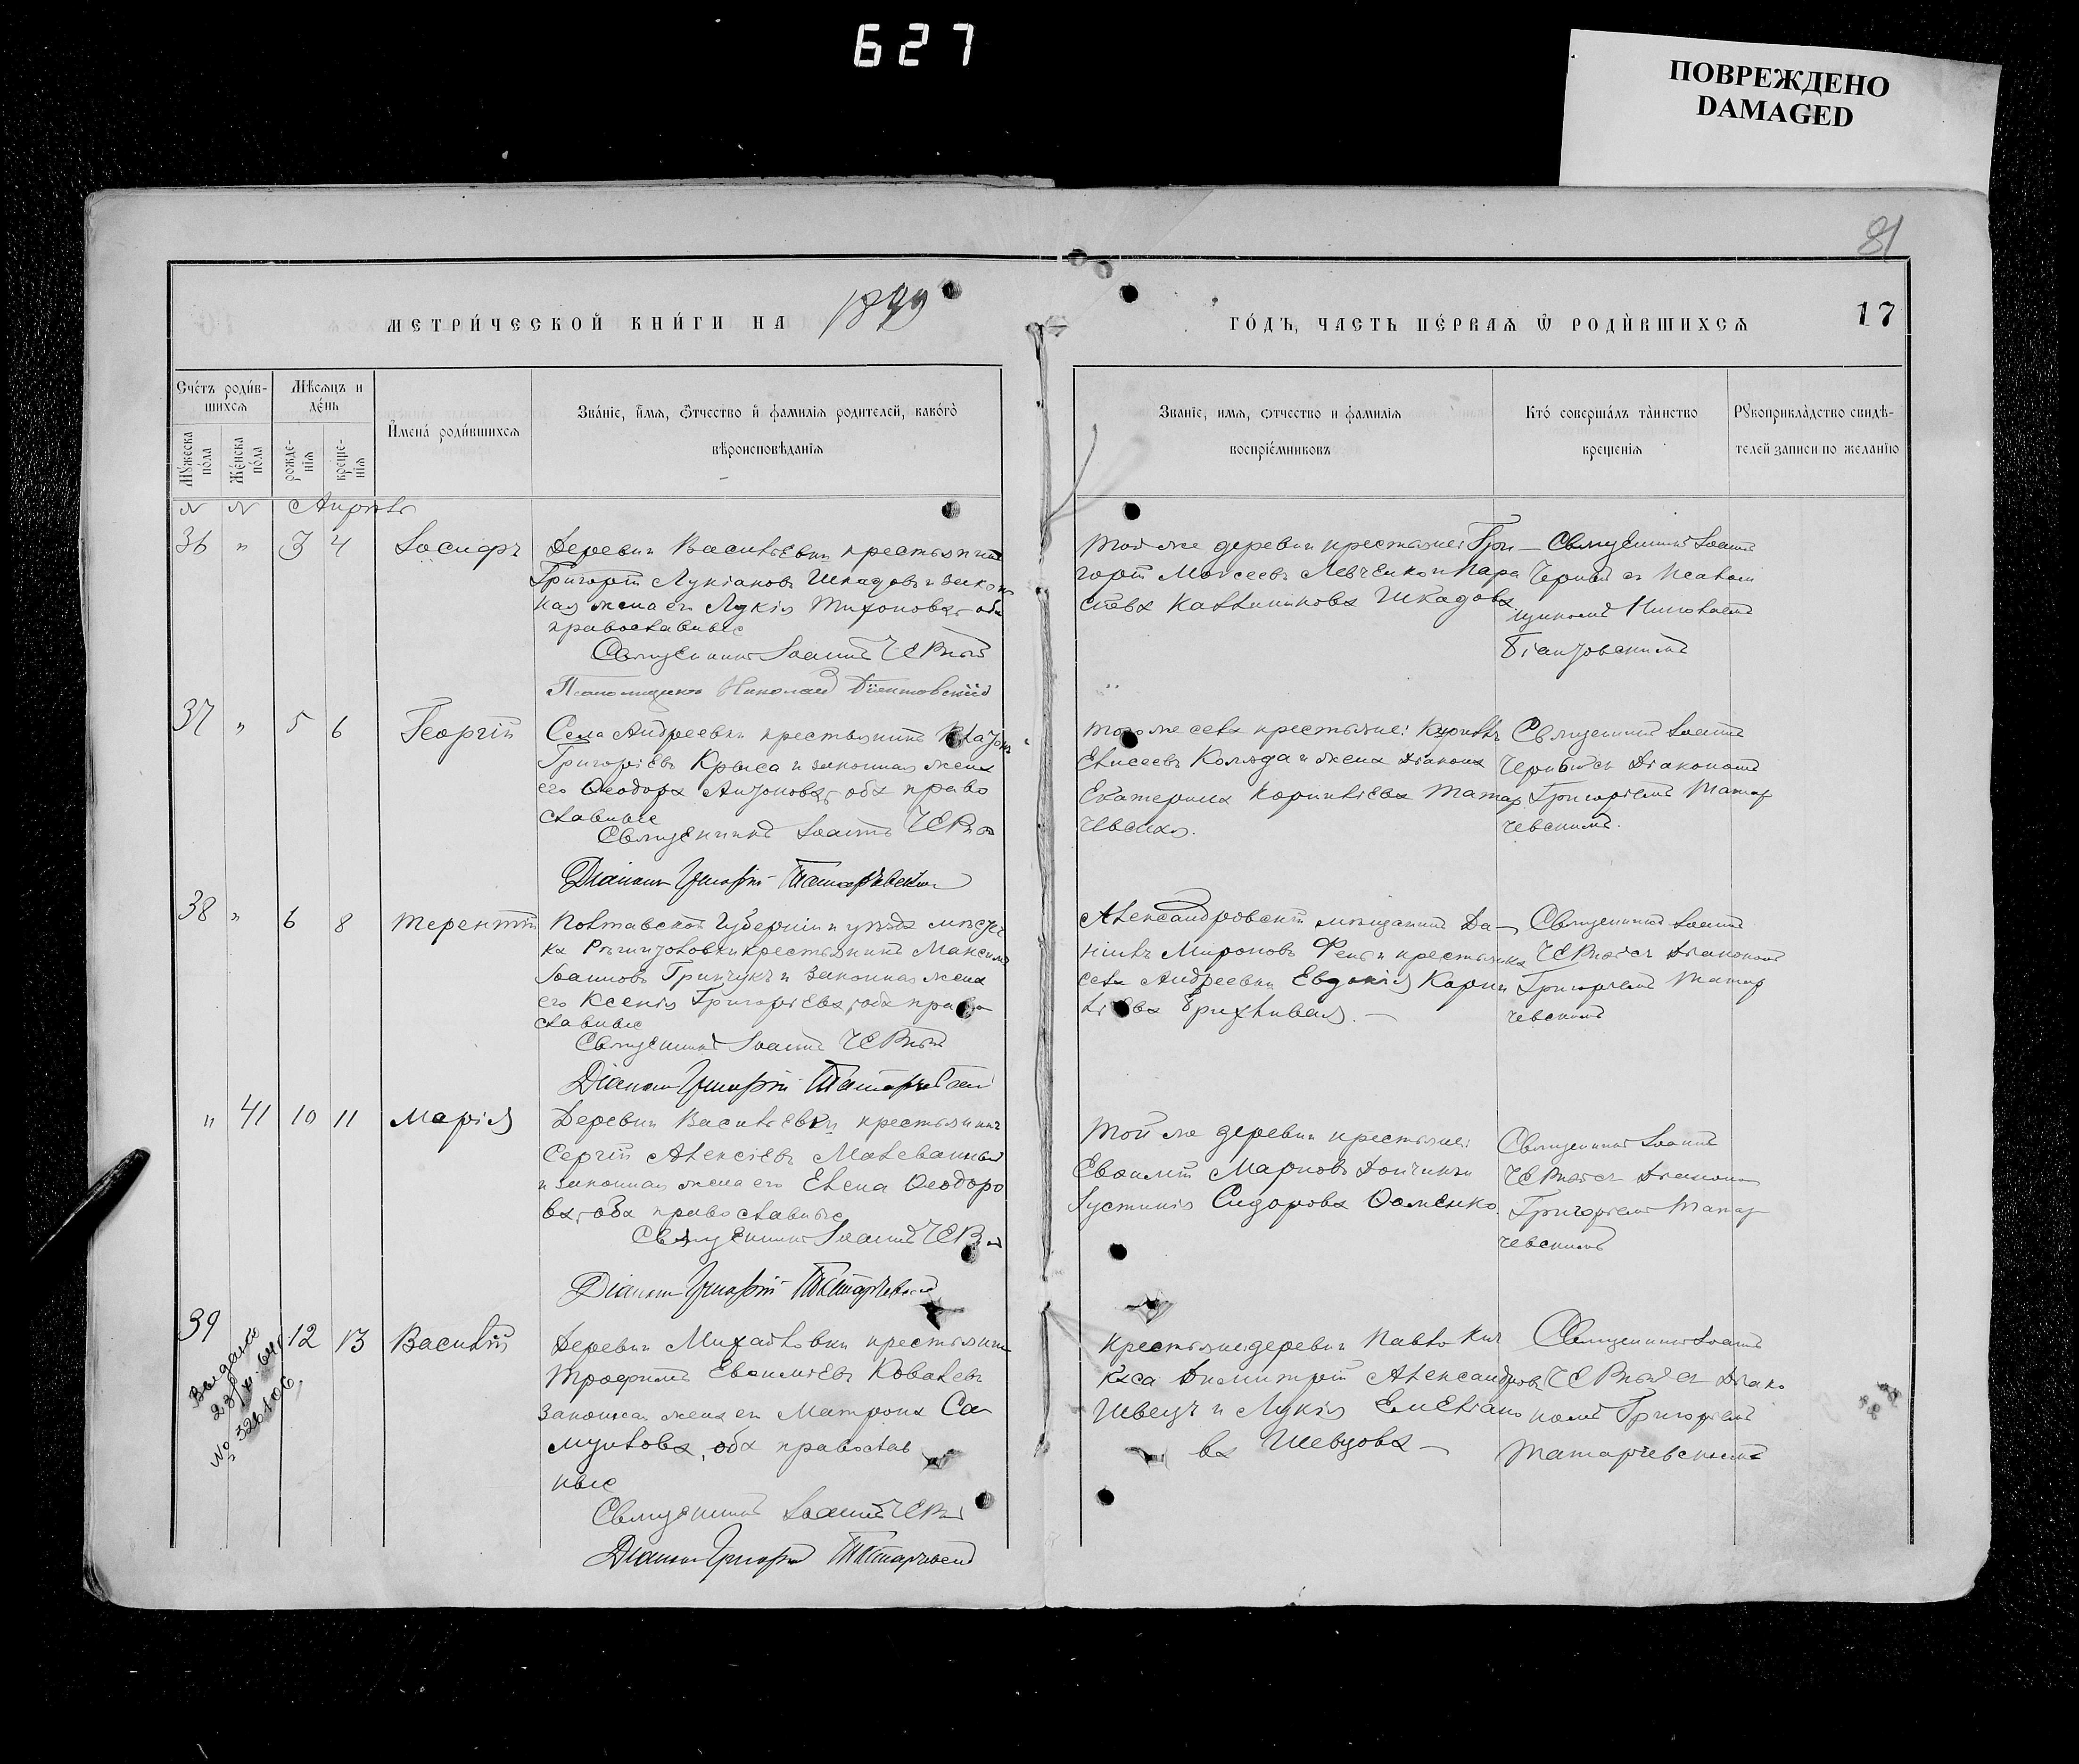 627
ПОВРЕЖДЕНО
DAMAGED
81
МЕТРИ́ЧЕСКОЙ КНИ́ГИ НА 1899
ГО́ДЪ, ЧАСТЬ ПЕ́РВАѦ Ѿ РОДИ́ВШИХСѦ
17
Сче́тъ роди́в-
шихсѧ
Мѣ́сѧцъ и
де́нь
И҆мена̀ роди́вшихсѧ
Зва́нїе, и҆́мѧ, ѻ҆́тчество и҆ фами́лїѧ роди́телей, како́гѡ
вѣроисповѣ́данїѧ
Зва́нїе, имѧ, ѻтчество и фамилїѧ
воспрїе́мниковъ
Кто́ соверша́лъ та́инство
креще́нїѧ
Рꙋкоприкла́дство свидѣ́-
телей записи по желанїю
Мꙋ́жеска
по́ла
Же́нска
по́ла
рожде́-
нїѧ
креще́-
нїѧ
№ № Апрѣль
36 " 3 4 Іосифъ
Деревни Васильевки крестьянинъ
Григорій Лукіановъ Шкадовъ и закон
ная жена его Лукія Тихоновна, оба
православные
Священникъ Іоаннъ Черный
Псаломщикъ Николай
Той же деревни крестьяне: Гри
горій Моисеевъ Левченко и Пара
скева Каллиникова Шкадова
Священникъ Іоаннъ
Черный съ псалом
щикомъ Николаемъ
37 " 5 6 Георгій
Села Андреевки крестьянинъ
Григоріевъ Крыса и законная жена
его Ѳеодора Антонова, оба право
славные
Священникъ Іоаннъ Черный
Діаконъ Григорій Татарчевскій
Того же села крестьяне: Кириллъ
Елисеевъ Коляда и жена діакона
Екатерина Корнильева Татар
чевская.
Священникъ Іоаннъ
Черный съ діакономъ
Григоріемъ Татар
чевскимъ.
38 " 6 8 Терентій
Полтавской Губерніи и уѣзда мѣстеч
ка Рѣшетиловки крестьянинъ Максимъ
Іоанновъ Гринчукъ и законная жена
его Ксенія Григорьева, оба право
славные
Священникъ Іоаннъ Черный
Діаконъ Григорій Татарчевскій
Александровскій мѣщанинъ Да
ніилъ Мироновъ и крестьянка
села Андреевки Евдокія Корни
льева
Священникъ Іоаннъ
Черный съ діакономъ
Григоріемъ Татар
чевскимъ
" 41 10 11 Марія
Деревни Васильевки крестьянинъ
Сергій Алексіевъ Малеванный
и законная жена его Елена Ѳеодоро
ва, оба православные
Священникъ Іоаннъ Черный
Діаконъ Григорій Татарчевскій
Той же деревни крестьяне:
Евѳимій Марковъ
Іустинія Сидорова
Священникъ Іоаннъ
Черный съ діакономъ
Григоріемъ Татар
чевскимъ
39 12 13 Василій
Выдана
Деревни Михайловки крестьянинъ
Трофимъ Евѳиміевъ Ковалевъ
законная жена его Матрона Са
муилова, оба православ
ные
Священникъ Іоаннъ Черный
Діаконъ Григорій Татарчевскій
Крестьяне деревни Павло Кич
каса Димитрій Александровъ
Швецъ и Лукія Емельяно
ва Шевцова
Священникъ Іоаннъ
Черный съ діако
номъ Григоріемъ
Татарчевскимъ